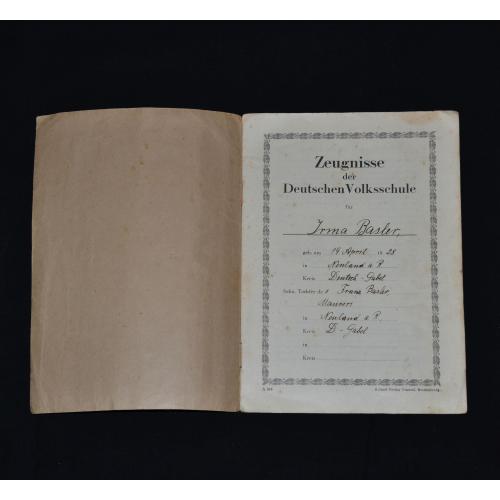 Zeugnisse
der
Deutschen Volksschule
für
Irma Basler,
geb. am 14 April 19 28
in Neuland a. R.
Kreis Deutsch-Gabel
Tochter des Franz Basler,
Maurers
in Neuland a. R.
Kreis D-Gabel
in
Kreis